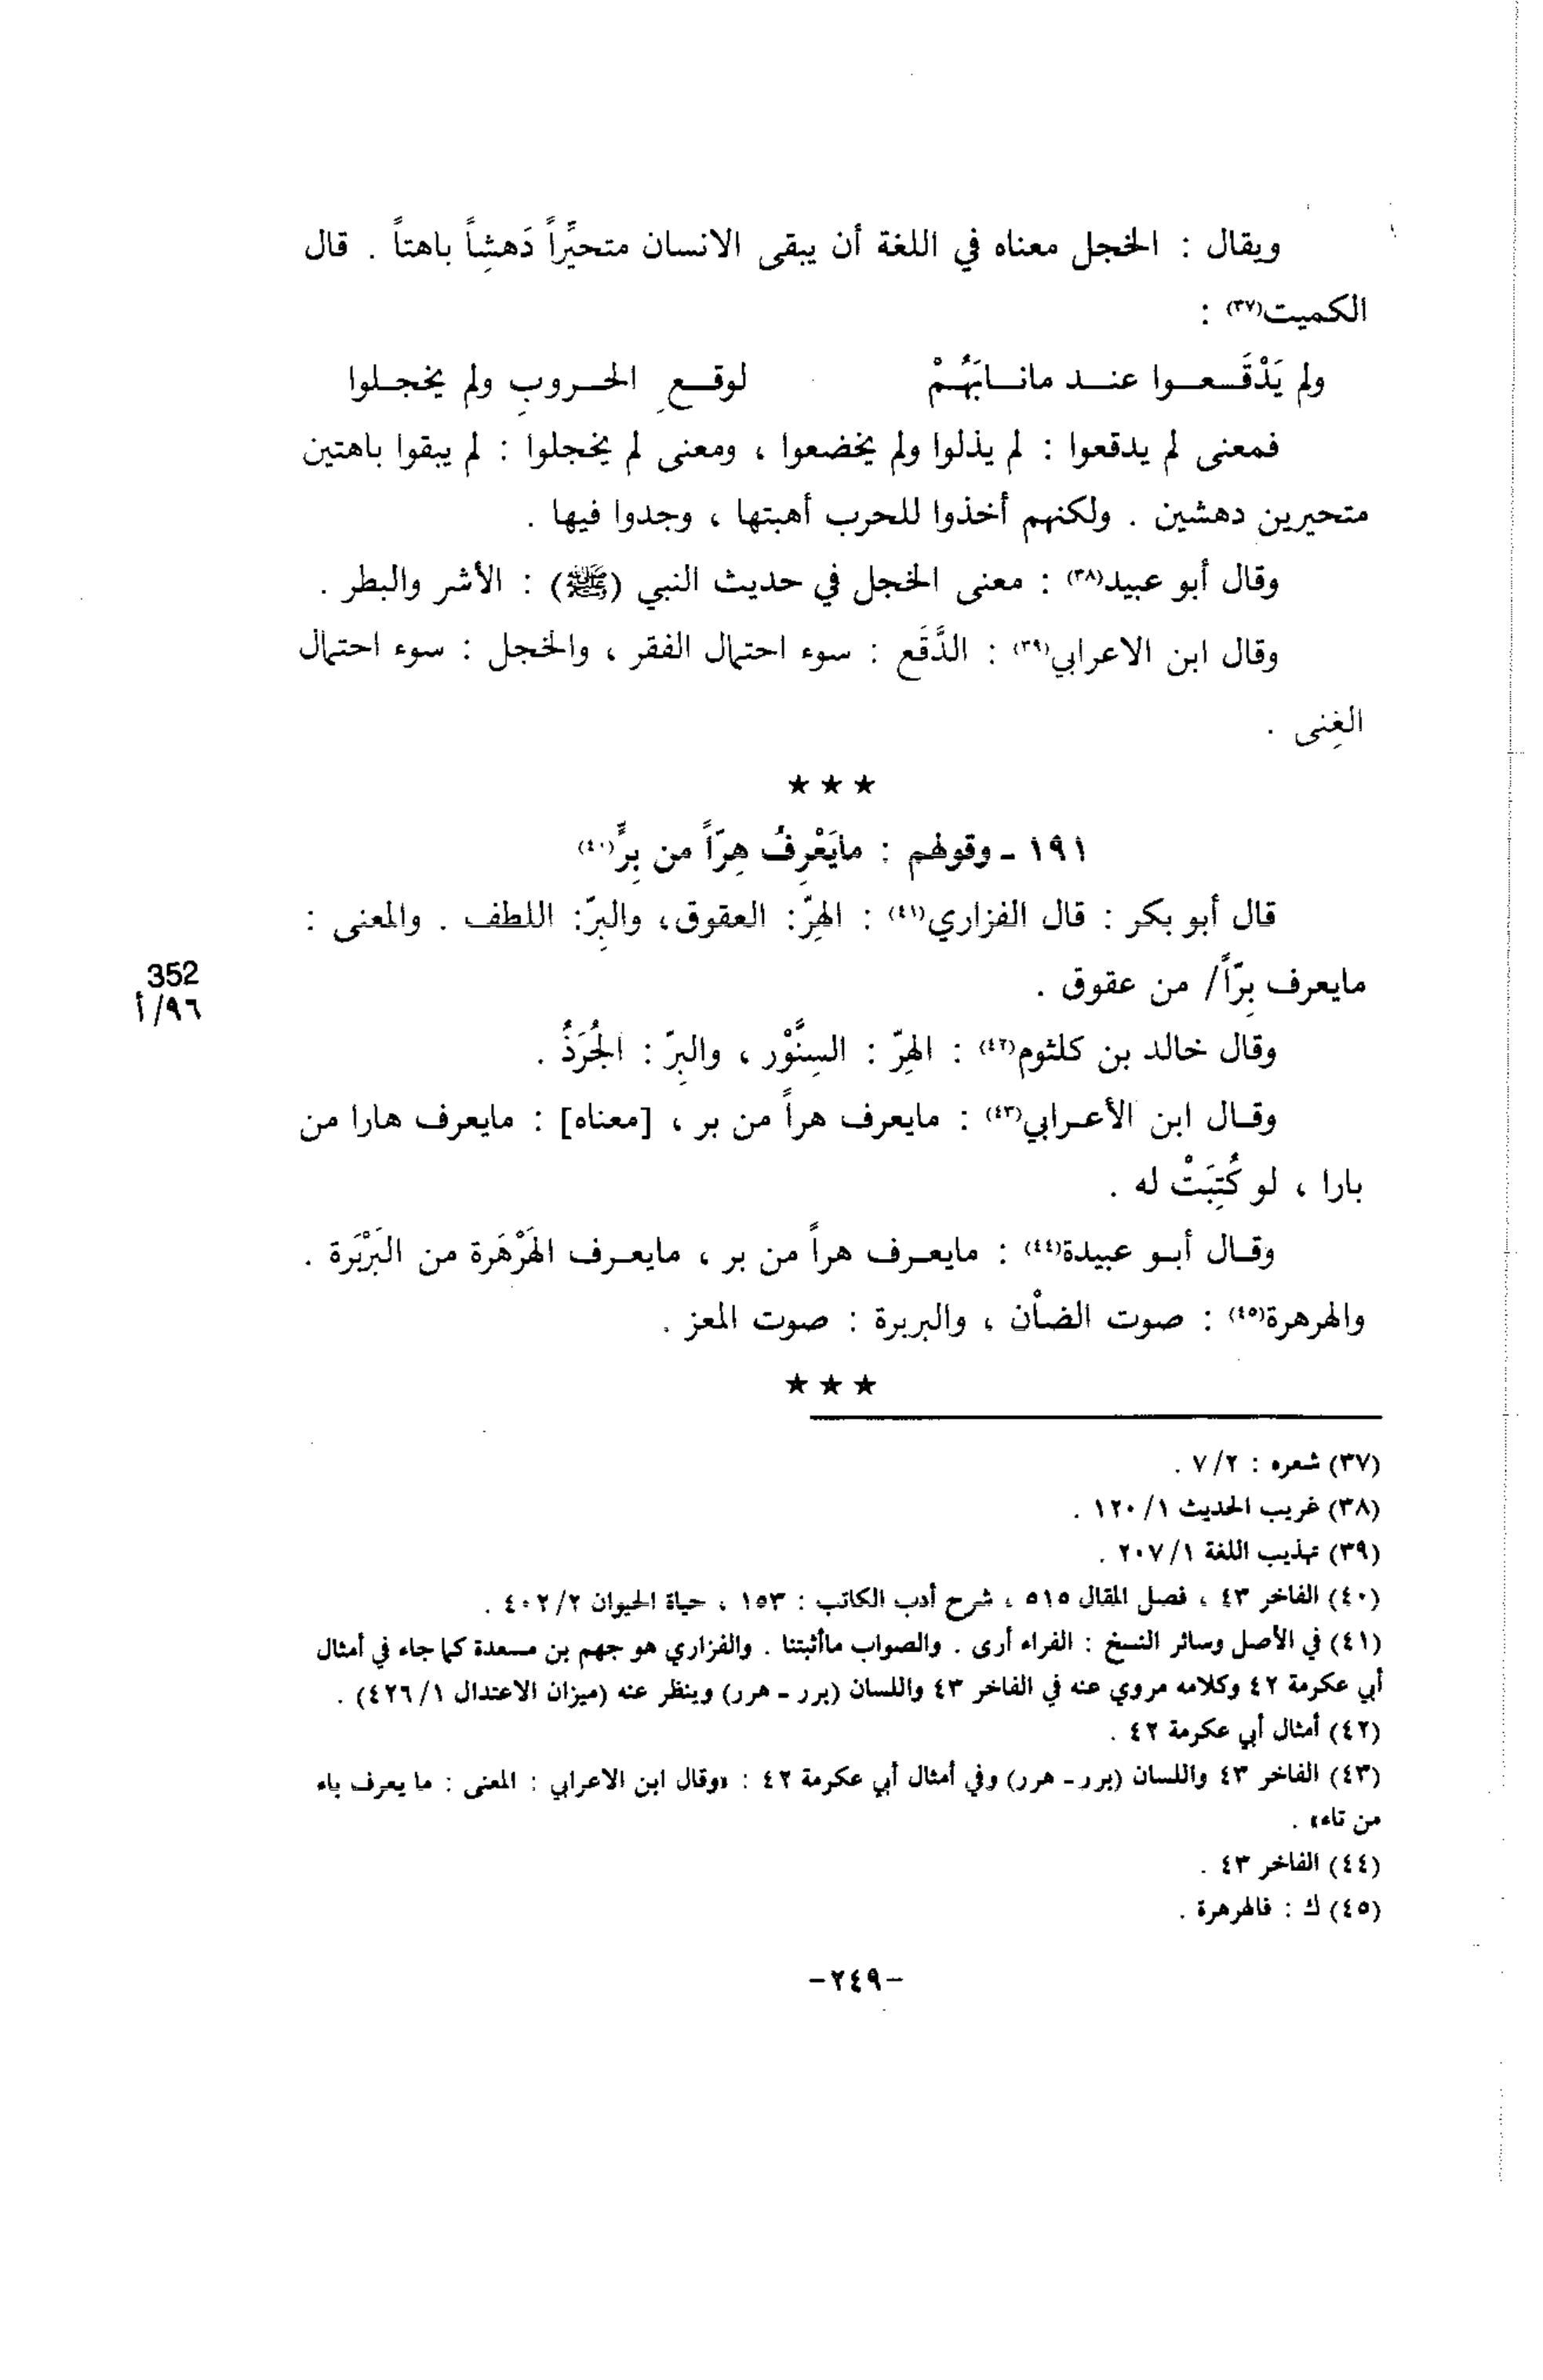 ويقال : الخجل معناه في اللغة أن يبقى الانسان متحيِّراً دَهشِاً باهتاً . قال
الكميت(٣٧) :
ولم يَدْقَـعـوا عنـد مانـابَهُـمْ لوقـعِ الحـروبِ ولم يخجـلوا
فمعنى لم يدقعوا : لم يذلوا ولم يخضعوا ، ومعنى لم يخجلوا : لم يبقوا باهتين
متحيرين دهشين . ولكنهم أخذوا للحرب أهبتها ، وجدوا فيها .
وقال أبو عبيد(٣٨) : معنى الخجل في حديث النبي (ﷺ) : الأشر والبطر .
وقال ابن الاعرابي(٣٩) : الدَّقَع : سوء احتمال الفقر ، والخجل : سوء احتمال
الغِنى .
★ ★ ★
١٩١ - وقولهم : مايَعْرِفُ هِرّاً من بِرٍّ(٤٠)
قال أبو بكر : قال الفزاري(٤١) : الهِرّ: العقوق، والبِرّ: اللطف . والمعنى :
مايعرف بِرّاً/ من عقوق .
352
٩٦/أ
وقال خالد بن كلثوم(٤٢) : الهِرّ : السِنَّوْر ، والبِرّ : الجُرَذُ .
وقـال ابن الأعـرابي(٤٣) : مايعرف هراً من بر ، [معناه] : مايعرف هارا من
بارا ، لو كُتِبَتْ له .
وقـال أبـو عبيدة(٤٤) : مايعـرف هراً من بر ، مايعـرف الهَرْهَرة من البَرْبَرة .
والهرهرة(٤٥) : صوت الضأن ، والبربرة : صوت المعز .
★ ★ ★
(٣٧) شعره : ٧/٢ .
(٣٨) غريب الحديث ١٢٠/١ .
(٣٩) تهذيب اللغة ٢٠٧/١ .
(٤٠) الفاخر ٤٣ ، فصل المقال ٥١٥ ، شرح أدب الكاتب : ١٥٣ ، حياة الحيوان ٤٠٢/٢ .
(٤١) في الأصل وسائر النسخ : الفراء أرى . والصواب ماأثبتنا . والفزاري هو جهم بن مسعدة كما جاء في أمثال
أبي عكرمة ٤٢ وكلامه مروي عنه في الفاخر ٤٣ واللسان (برر - هرر) وينظر عنه (ميزان الاعتدال ٤٢٦/١) .
(٤٢) أمثال أبي عكرمة ٤٢ .
(٤٣) الفاخر ٤٣ واللسان (برر - هرر) وفي أمثال أبي عكرمة ٤٢ : «وقال ابن الاعرابي : المعنى : ما يعرف باء
من تاء» .
(٤٤) الفاخر ٤٣ .
(٤٥) ك : فالهرهرة .
-٢٤٩-